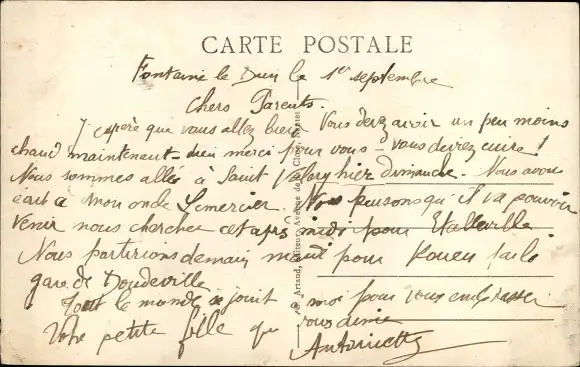 CARTE POSTALE
Fontaine le Dun le 1er septembre
Chers Parents.
J'espère que vous allez bien. Vous devez avoir un peu moins
chaud maintenant - dieu merci pour vous - vous devrez cuire !
Nous sommes allés à Saint Valery hier dimanche. Nous avons
écrit à mon oncle Lemercier. Nous pensons qu'il va pouvoir
venir nous chercher cet après midi pour Etalleville
Nous partirions demain mardi pour Rouen par la
gare de Doudeville
Tout le monde se joint à moi pour vous embrasser
Votre petite fille qui vous aime
Antoinette
Artaud, Editeur, Avenue de la Close, Nantes